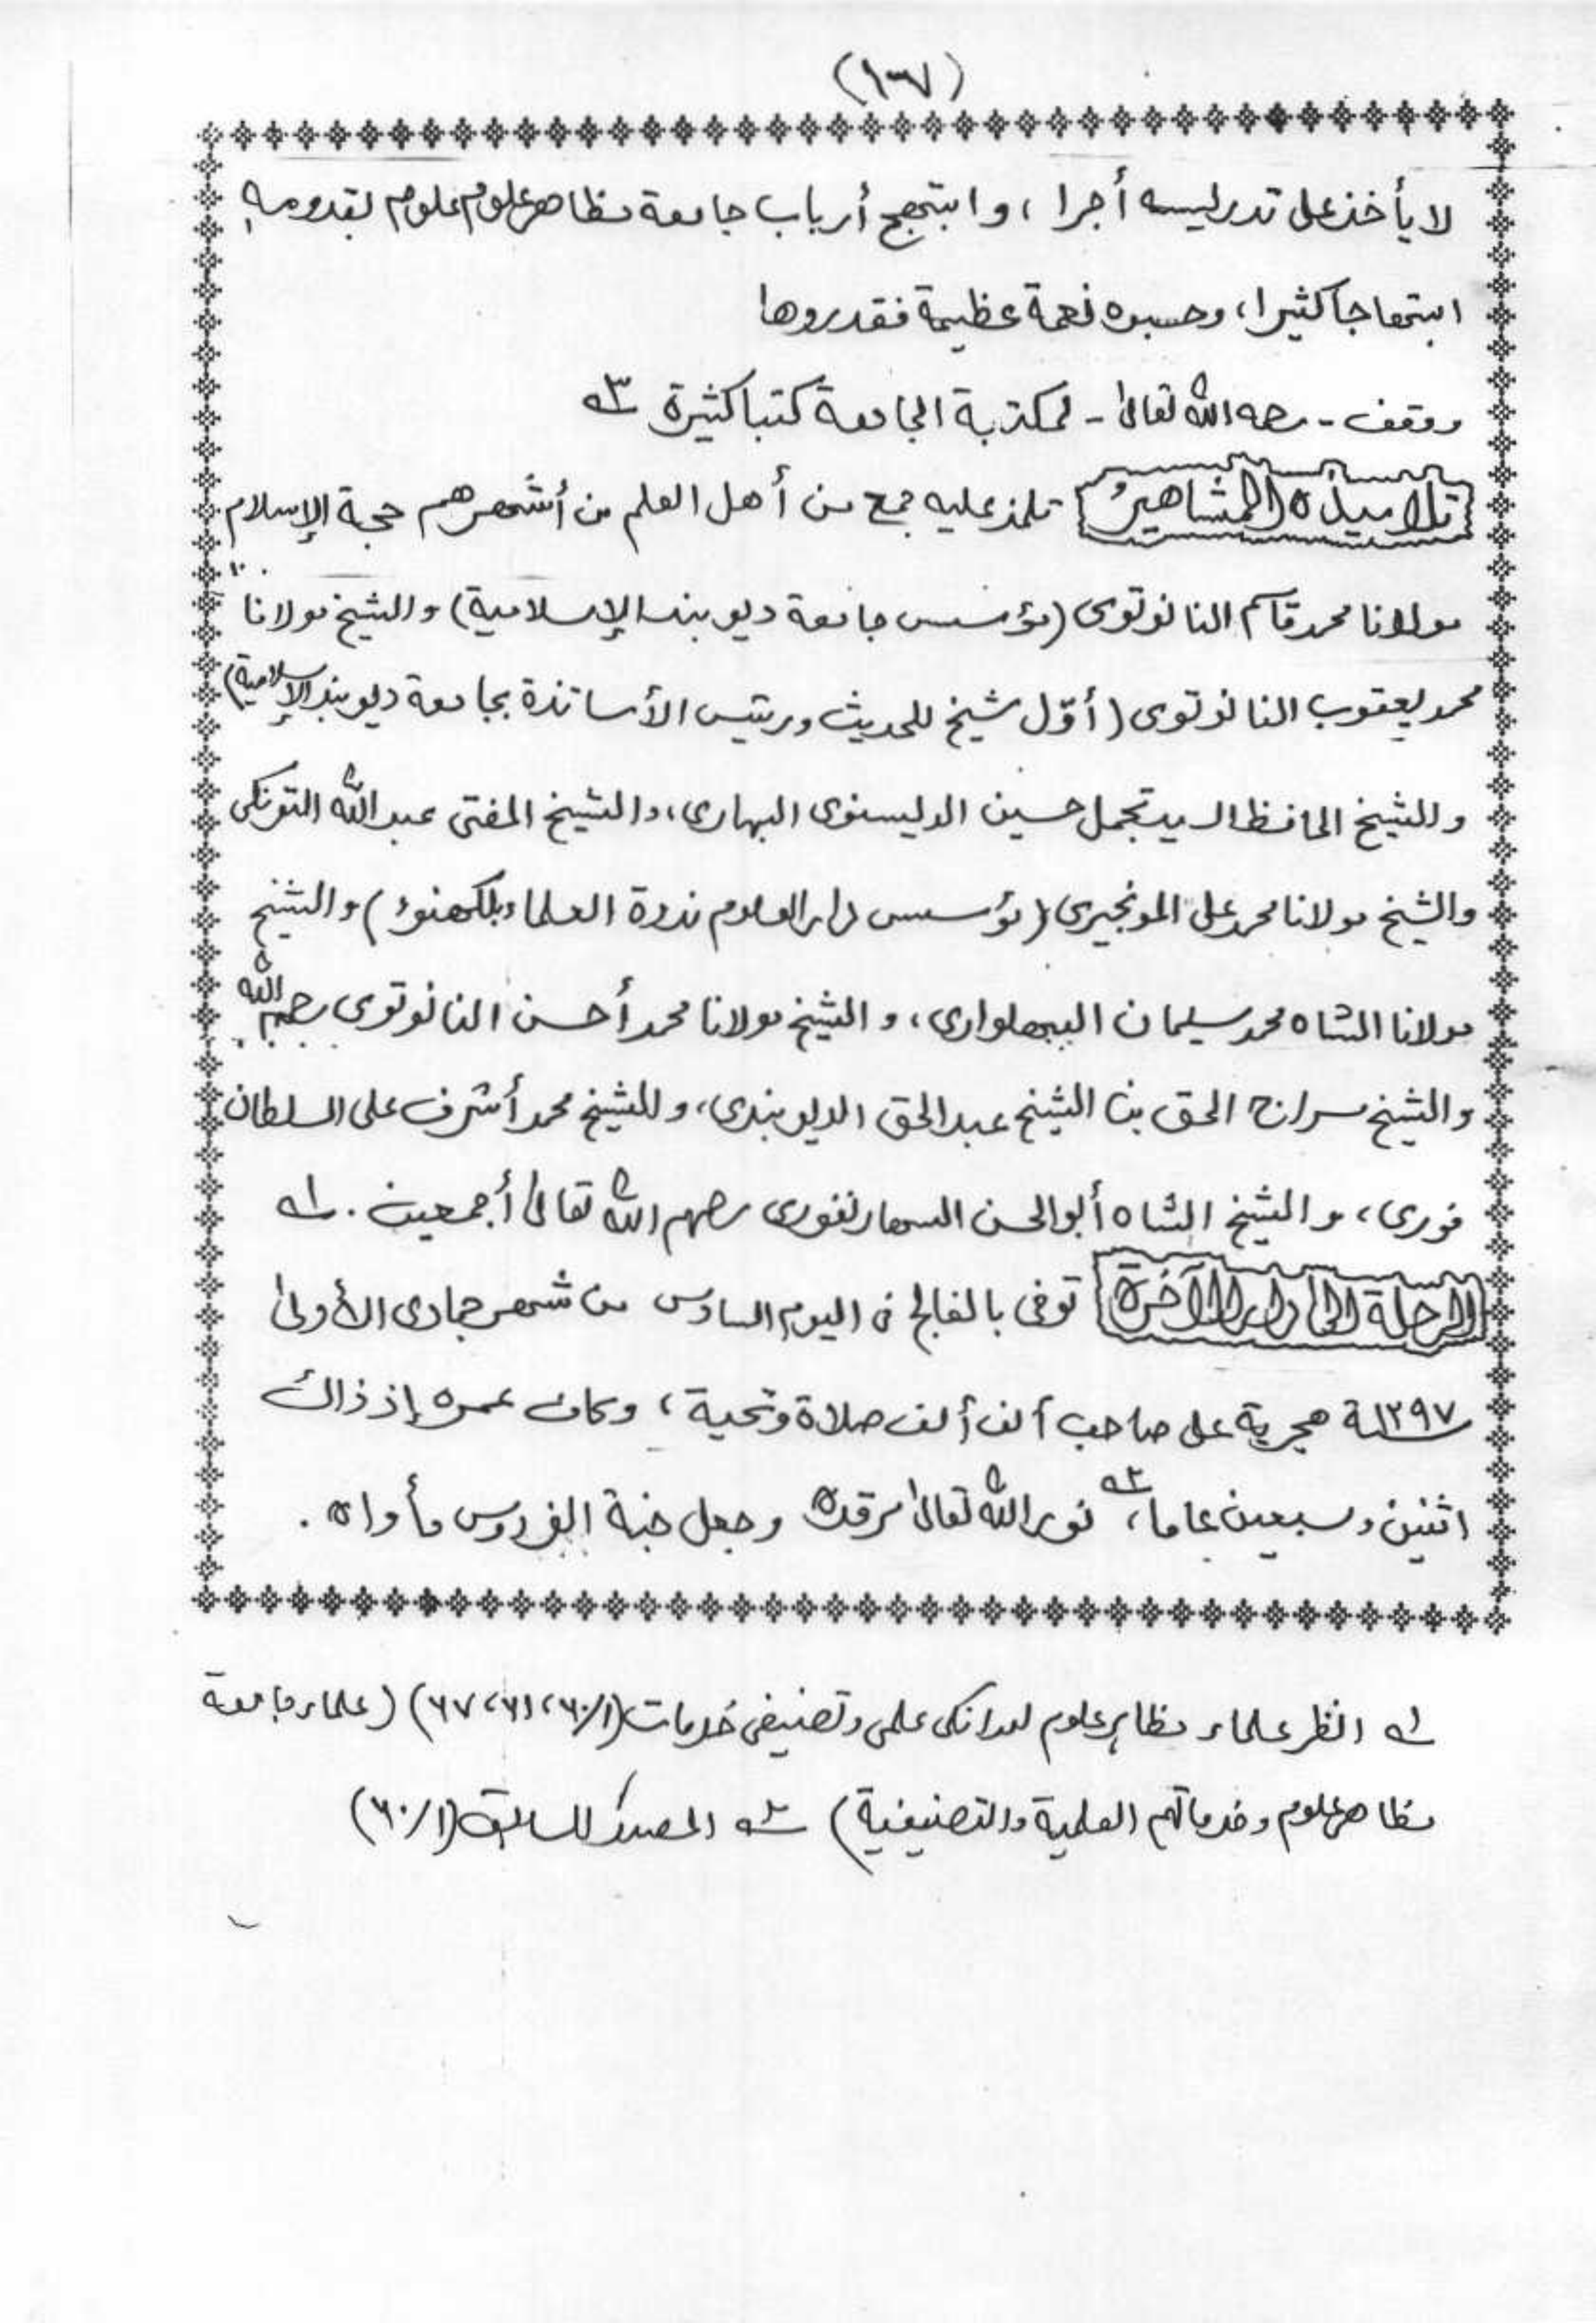 (١٠٧)
لا يأخذ على تدريسه أجرا ، و ابتهج أرباب جامعة مظاهر علوم بقدومه
ابتهاجا كثيرا ، وحسبوه نعمة عظيمة فقدروها
ووقف - رحمه الله تعالى - لمكتبة الجامعة كتبا كثيرة ٣ـه
تلاميذه المشاهير تلمذ عليه جمع من أهل العلم من أشهرهم حجة الإسلام
مولانا محمد قاسم النانوتوى (مؤسس جامعة ديوبند الإسلامية) والشيخ مولانا
محمد يعقوب النانوتوى (أوّل شيخ للحديث ورئيس الأساتذة بجامعة ديوبند الإسلامية)
والشيخ الحافظ السيد تجمل حسين الديسنوى البهارى، والشيخ المفتى عبد الله التونكى
والشيخ مولانا محمد على المونجيرى (مؤسس دار العلوم ندوة العلماء بلكهنؤ) والشيخ
مولانا الشاه محمد سليمان البهلوارى ، و الشيخ مولانا محمد أحسن النانوتوى رحمهم الله
والشيخ سراج الحق بن الشيخ عبد الحق الديوبندى، والشيخ محمد أشرف على السلطان
فورى ، و الشيخ الشاه أبو الحسن السهارنفورى رحمهم الله تعالى أجمعين . ١ـه
الرحلة إلى دار الآخرة توفى بالفالج فى اليوم السادس من شهر جمادى الأولى
سنة ١٢٩٧ هجرية على صاحب ألف ألف صلاة وتحية ، وكان عمره إذ ذاك
اثنين وسبعين عاما ، ٢ـه نور الله تعالى مرقده وجعل جنة الفردوس مأواه .
١ـه انظر علماء مظاہر علوم اور انکی علمی وتصنیفی خدمات (١/٦٠، ٦١، ٦٧) (علماء جامعة
مظاهر علوم وخدماتهم العلمية والتصنيفية) ٢ـه المصدر السابق (١/٦٠)